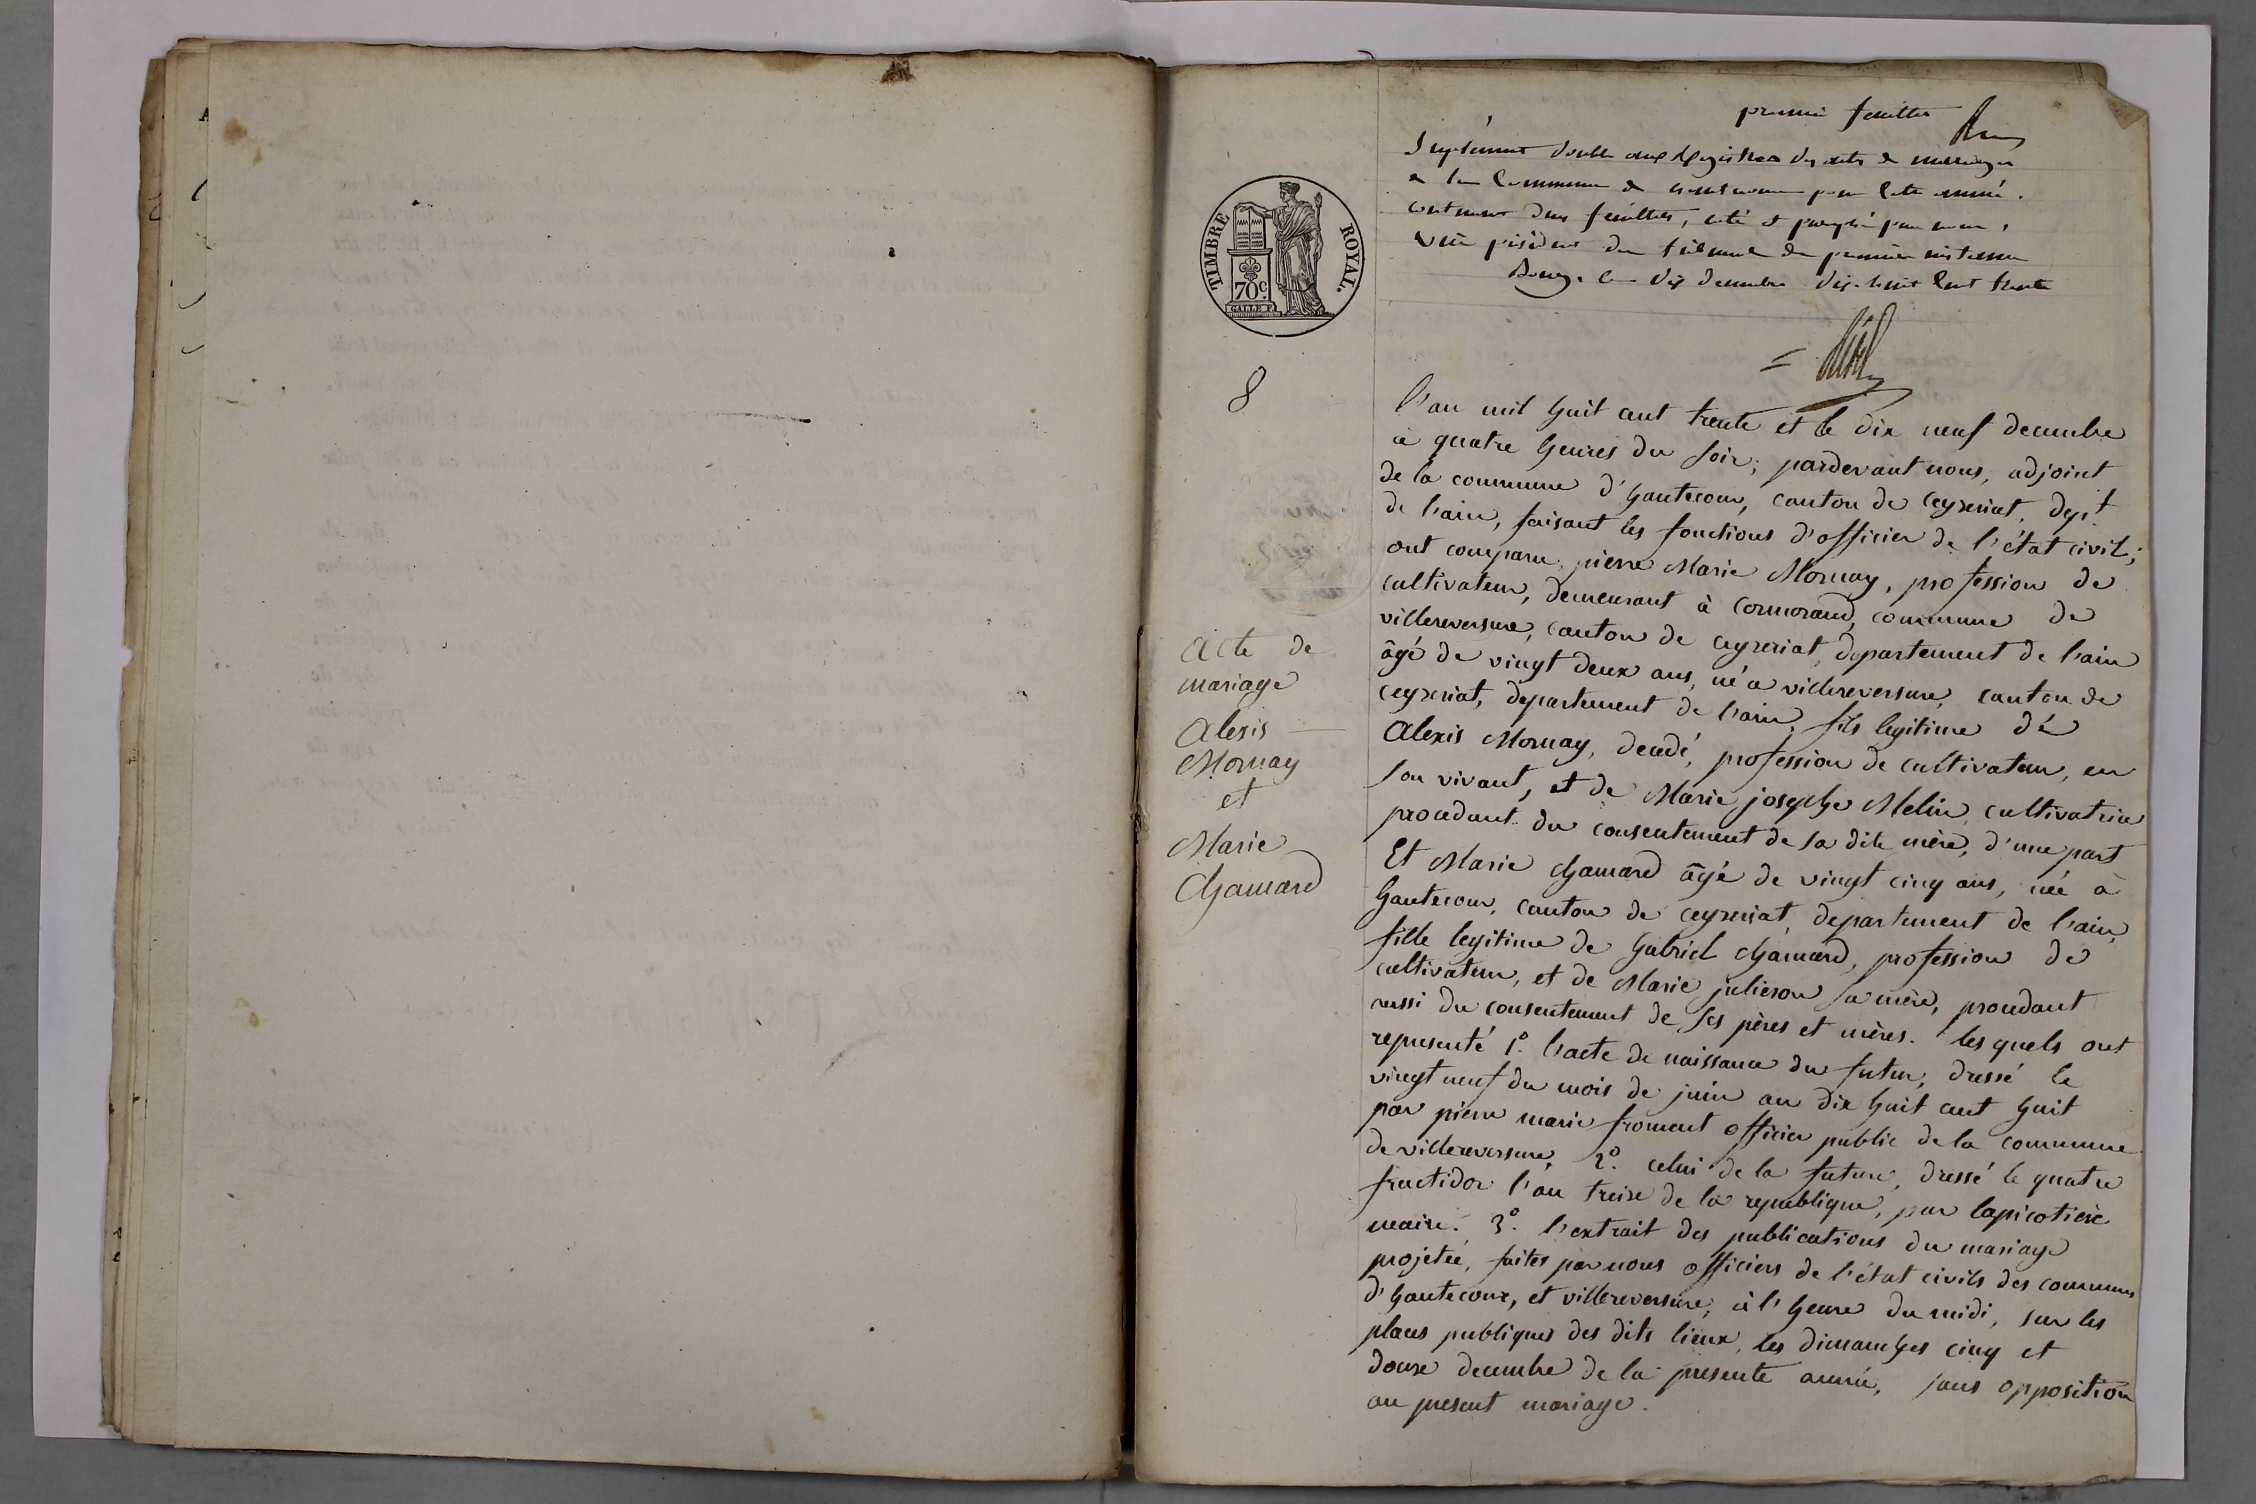 premier feuillet
Suplément double aux Registres des actes de mariages
de la Commune de hautecour pour cette année.
contenant deux feuillets, coté et paraphé par nous,
vice président du tribunal de première instance
Bourg le dix decembre dix-huit cent trente
TIMBRE ROYAL.
70c.
8
Acte de
mariage
Alexis
Mornay
et
Marie
Chamard
L'an mil huit cent trente et le dix neuf decembre
à quatre heures du soir, pardevant nous, adjoint
de la commune d'hautecour, canton de ceyzeriat, dept.
de l'ain, faisant les fonctions d'officier de l'état civil;
ont comparu, pierre Marie Mornay, profession de
cultivateur, demeurant à Cormorand, commune de
villereversure, canton de ceyzeriat, departement de l'ain
âgé de vingt deux ans, né a villereversure, canton de
ceyzeriat, departement de l'ain, fils legitime dé
Alexis Mornay, decedé, profession de cultivateur, en
son vivant, et de Marie josephe Melin, cultivatrice
procedant du consentement de sa dite mère, d'une part
Et Marie Chamard âgé de vingt cinq ans, née à
hautecour, canton de ceyzeriat, departement de l'ain,
fille legitime de Gabriel Chamard, profession de
cultivateur, et de Marie julieron sa mère, procedant
aussi du consentement de ses pères et mères. les quels ont
representé 1º. l'acte de naissance du futur, dressé le
vingt neuf du mois de juin an dix huit cent huit
par pierre marie froment officier public de la commune
de villereversure, 2º. celui de la future, dressé le quatre
fructidor l'an treize de la republique, par lapicotiere
maire. 3º. l'extrait des publications du mariage
projetée, faites par nous officiers de l'état civils des communes
d'hautecour, et villereversure, à l'heure du midi, sur les
places publiques des dits lieux, les dimanches cinq et
douze decembre de la presente année, sans opposition
au present mariage.